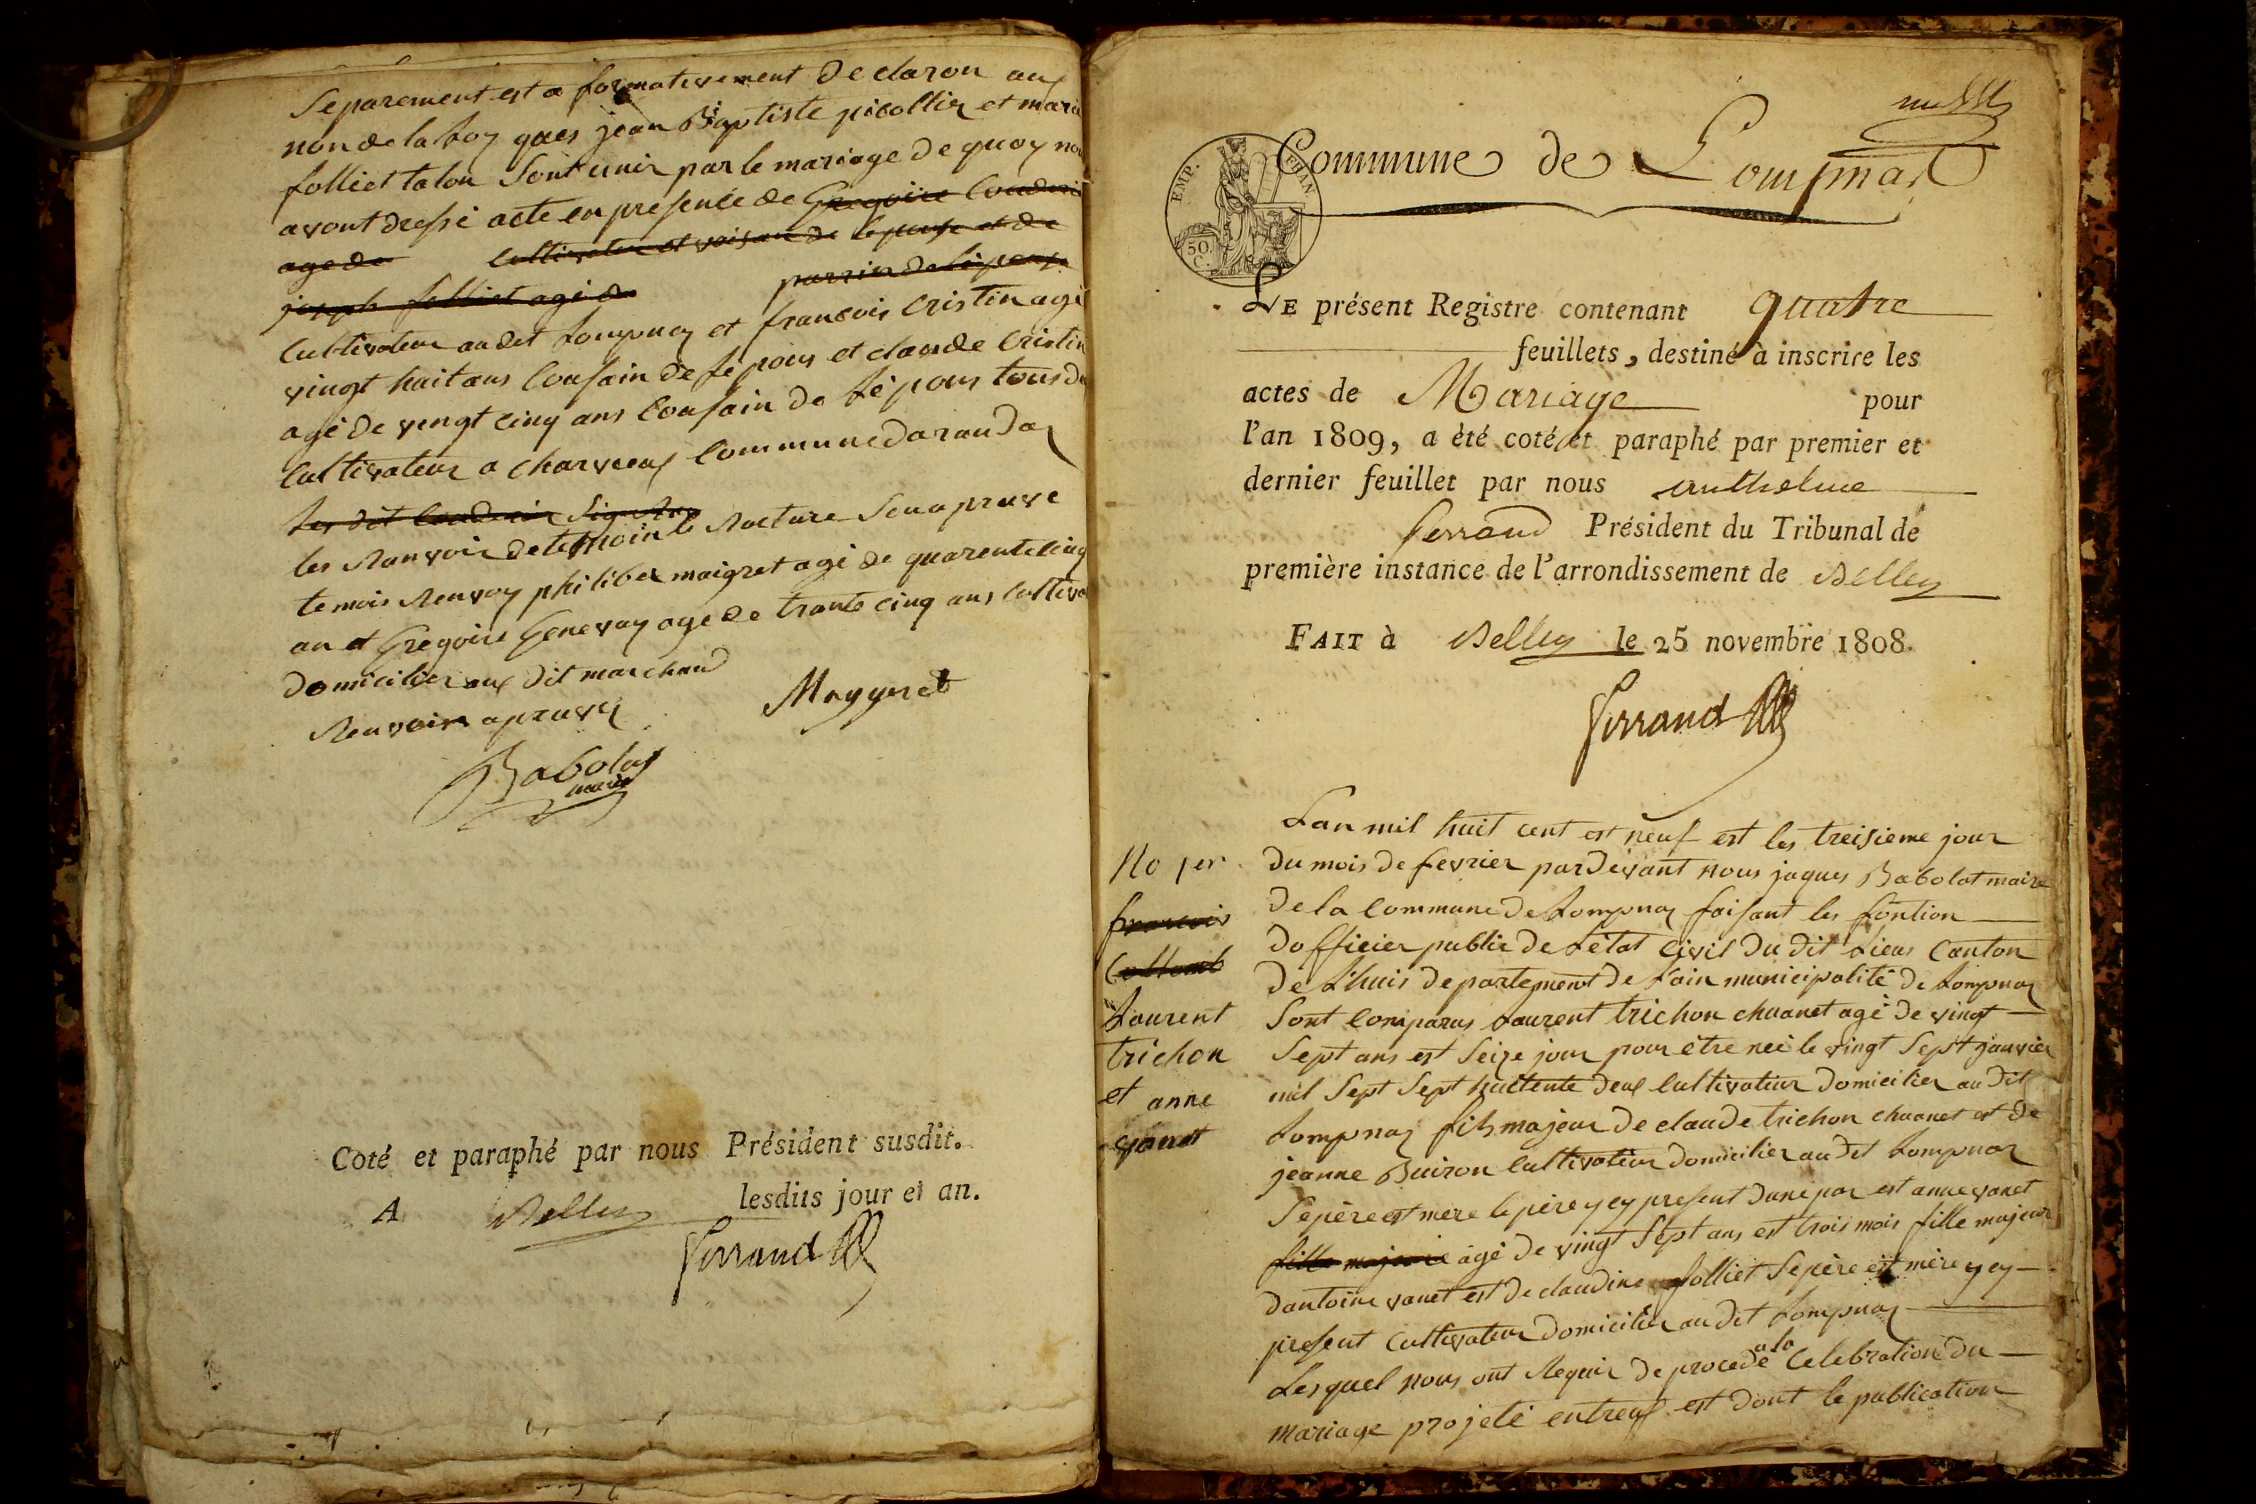 Separement est a formativement declaron au
non de la Loy ques jean Baptiste picollier et marie
folliet talon Sont unir par le mariage de quoy nou
avont dressé acte en presence de Gregoire
age de Cultivateur et voisaint de lepouse et de
joseph folliet agé de parrin de lépouse
Cultivateur audit Lompnas et francois Cristin agé
vingt huit ans Cousain de Lépous et claude Cristin
agé de vengt cinq ans Cousain de Lépous tous de
Cultivateur a charveux Commune daranda
les Ranvoir de temoin le Racture Senapruve
temois Renvoy philiber maigret agé de quarente cinq
an et Gregoire Genevay age de trante cinq ans Cultiva
domicilier aux dit marchand
Renvoirs apruvé
Mayguet
Babolat
maire
Coté et paraphé par nous Président susdit.
A Belley lesdits jour et an.
Ferrand
Commune de Lompnas
EMP. FRAN
50.
C.
LE présent Registre contenant quatre
feuillets, destiné à inscrire les
actes de Mariage pour
l'an 1809, a èté coté et paraphé par premier et
dernier feuillet par nous anthelme
ferrand Président du Tribunal de
première instance de l'arrondissement de Belley
FAIT à Belley le 25 novembre 1808.
Ferrand
No 1er
francois
Collomb
Laurent
trichon
et anne
vanet
Lan mil huit cent est neuf est les treisieme jour
du mois de fevrier pardevant nous jaques Babolat maire
de la Commune de Lompnas faisant les fontion
dofficier public de Létat Civil du dit Lieus Canton
de Lhuis departement de Lain municipalité de Lompnas
Sont Comparus Laurent trichon chuanet agé de vingt
Sept ans est Seize jour pour être neé le vingt Sept janvier
mil Sept Sept huitente deux Cultivateur domicilier au dit
Lompnas fils majeur de claude trichon chuanet est de
jeanne Buiron Cultivateur domicilier au dit Lompnas
Sepère est mere le père y cy present dune par est anne vanet
fille majeure agé de vingt Sept ans est trois mois fille majeur
dantoine vanet est de claudine folliet Sepère est mère y cy
present Cultivateur domicilier au dit Lompnas
Lesquel nous ont Requir de procedé a la Celebration du
mariage projeté entreux est dont le publication